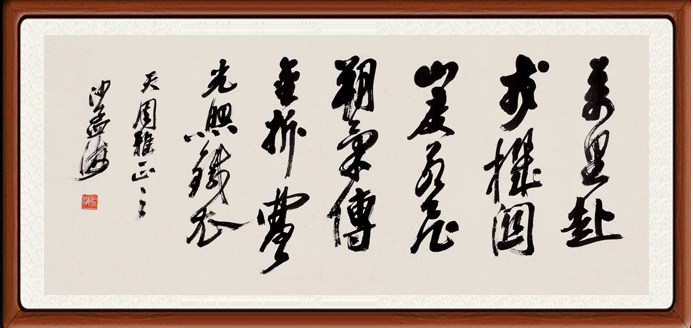 萬里赴
戎機關
山度若飛
朔氣傳
金柝寒
光照鐵衣
天周雅正
沙孟海